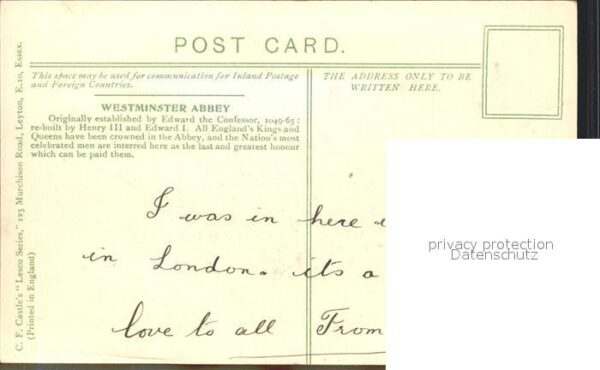 POST CARD.
This space may be used for communication for Inland Postage
and Foreign Countries.
THE ADDRESS ONLY TO BE
WRITTEN HERE.
WESTMINSTER ABBEY
Originally established by Edward the Confessor, 1049-65:
re-built by Henry III and Edward I. All England's Kings and
Queens have been crowned in the Abbey, and the Nation's most
celebrated men are interred here as the last and greatest honour
which can be paid them.
I was in here
in London. its a
love to all From
privacy protection
Datenschutz
C. F. Castle's "Lesco Series," 125 Murchison Road, Leyton, E.10, Essex.
(Printed in England)